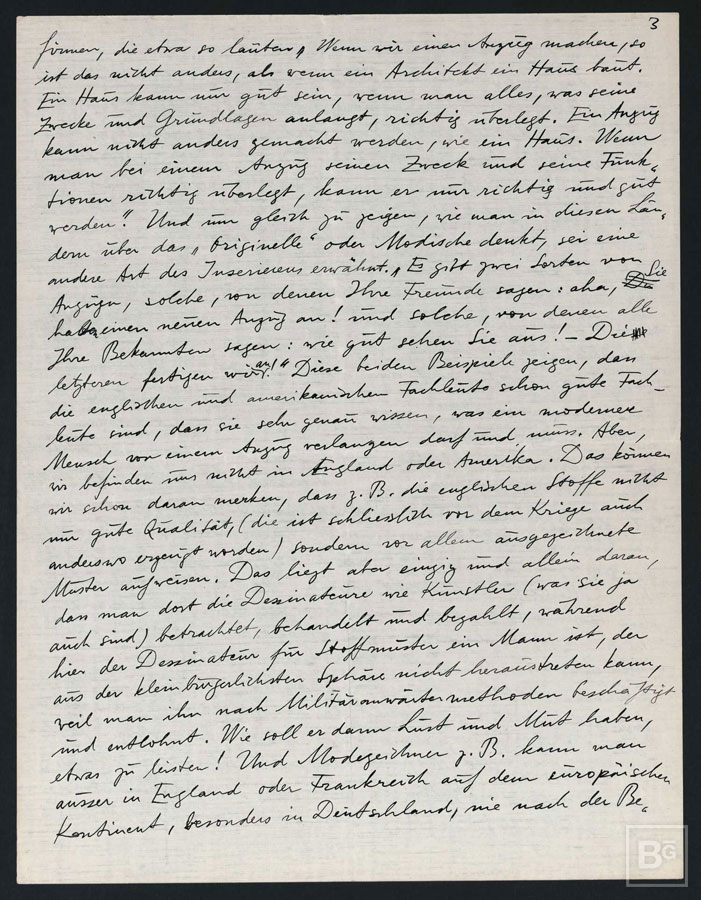 3
firmen, die etwa so lauten „Wenn wir einen Anzug machen, so
ist das nicht anders, als wenn ein Architekt ein Haus baut.
Ein Haus kann nur gut sein, wenn man alles, was seine
Zwecke und Grundlagen anlangt, richtig überlegt. Ein Anzug
kann nicht anders gemacht werden, wie ein Haus. Wenn
man bei einem Anzug seinen Zweck und seine Funk-
tionen richtig überlegt, kann er nur richtig und gut
werden“. Und um gleich zu zeigen, wie man in diesen Län-
dern über das „Originelle“ oder Modische denkt, sei eine
andere Art des Inserierens erwähnt. „Es gibt zwei Sorten von
Anzügen, solche, von denen Ihre Freunde sagen: aha, Sie
haben einen neuen Anzug an! und solche, von denen alle
Ihre Bekannten sagen: wie gut sehen Sie aus! – Die
letzteren fertigen wir an!“ Diese beiden Beispiele zeigen, dass
die englischen und amerikanischen Fachleute schon gute Fach-
leute sind, dass sie sehr genau wissen, was ein moderner
Mensch von einem Anzug verlangen darf und muss. Aber,
wir befinden uns nicht in England oder Amerika. Das können
wir schon daran merken, dass z. B. die englischen Stoffe nicht
nur gute Qualität, (die ist schliesslich vor dem Kriege auch
anderswo erzeugt worden) sondern vor allem ausgezeichnete
Muster aufweisen. Das liegt aber einzig und allein daran,
dass man dort die Dessinateure wie Künstler (was sie ja
auch sind) betrachtet, behandelt und bezahlt, während
hier der Dessinateur für Stoffmuster ein Mann ist, der
aus der kleinbürgerlichsten Sphäre nicht heraustreten kann,
weil man ihn nach Militäranwärtermethoden beschäftigt
und entlohnt. Wie soll er dann Lust und Mut haben,
etwas zu leisten! Und Modezeichner z. B. kann man
ausser in England oder Frankreich auf dem europäischen
Kontinent, besonders in Deutschland, nie nach der Be-
BG